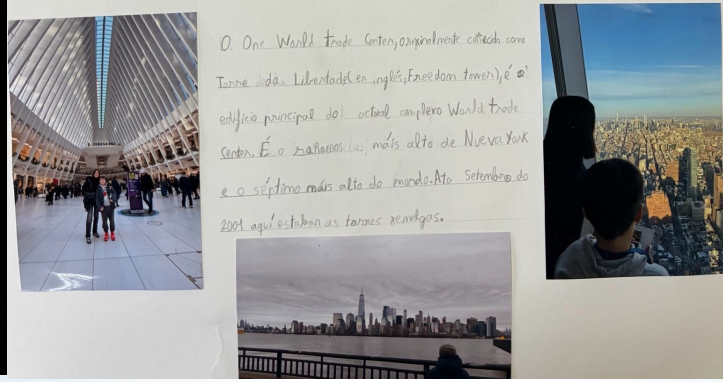 O One World trade Center, orixinalmente coñecido como
Torre da Liberdade(en inglés, Freedom tower), é o
edificio principal do actual complexo World trade
Center. É o rañaceos máis alto de Nueva York
e o séptimo máis alto do mundo. Ata Setembro do
2001 aquí estaban as torres xemelgas.